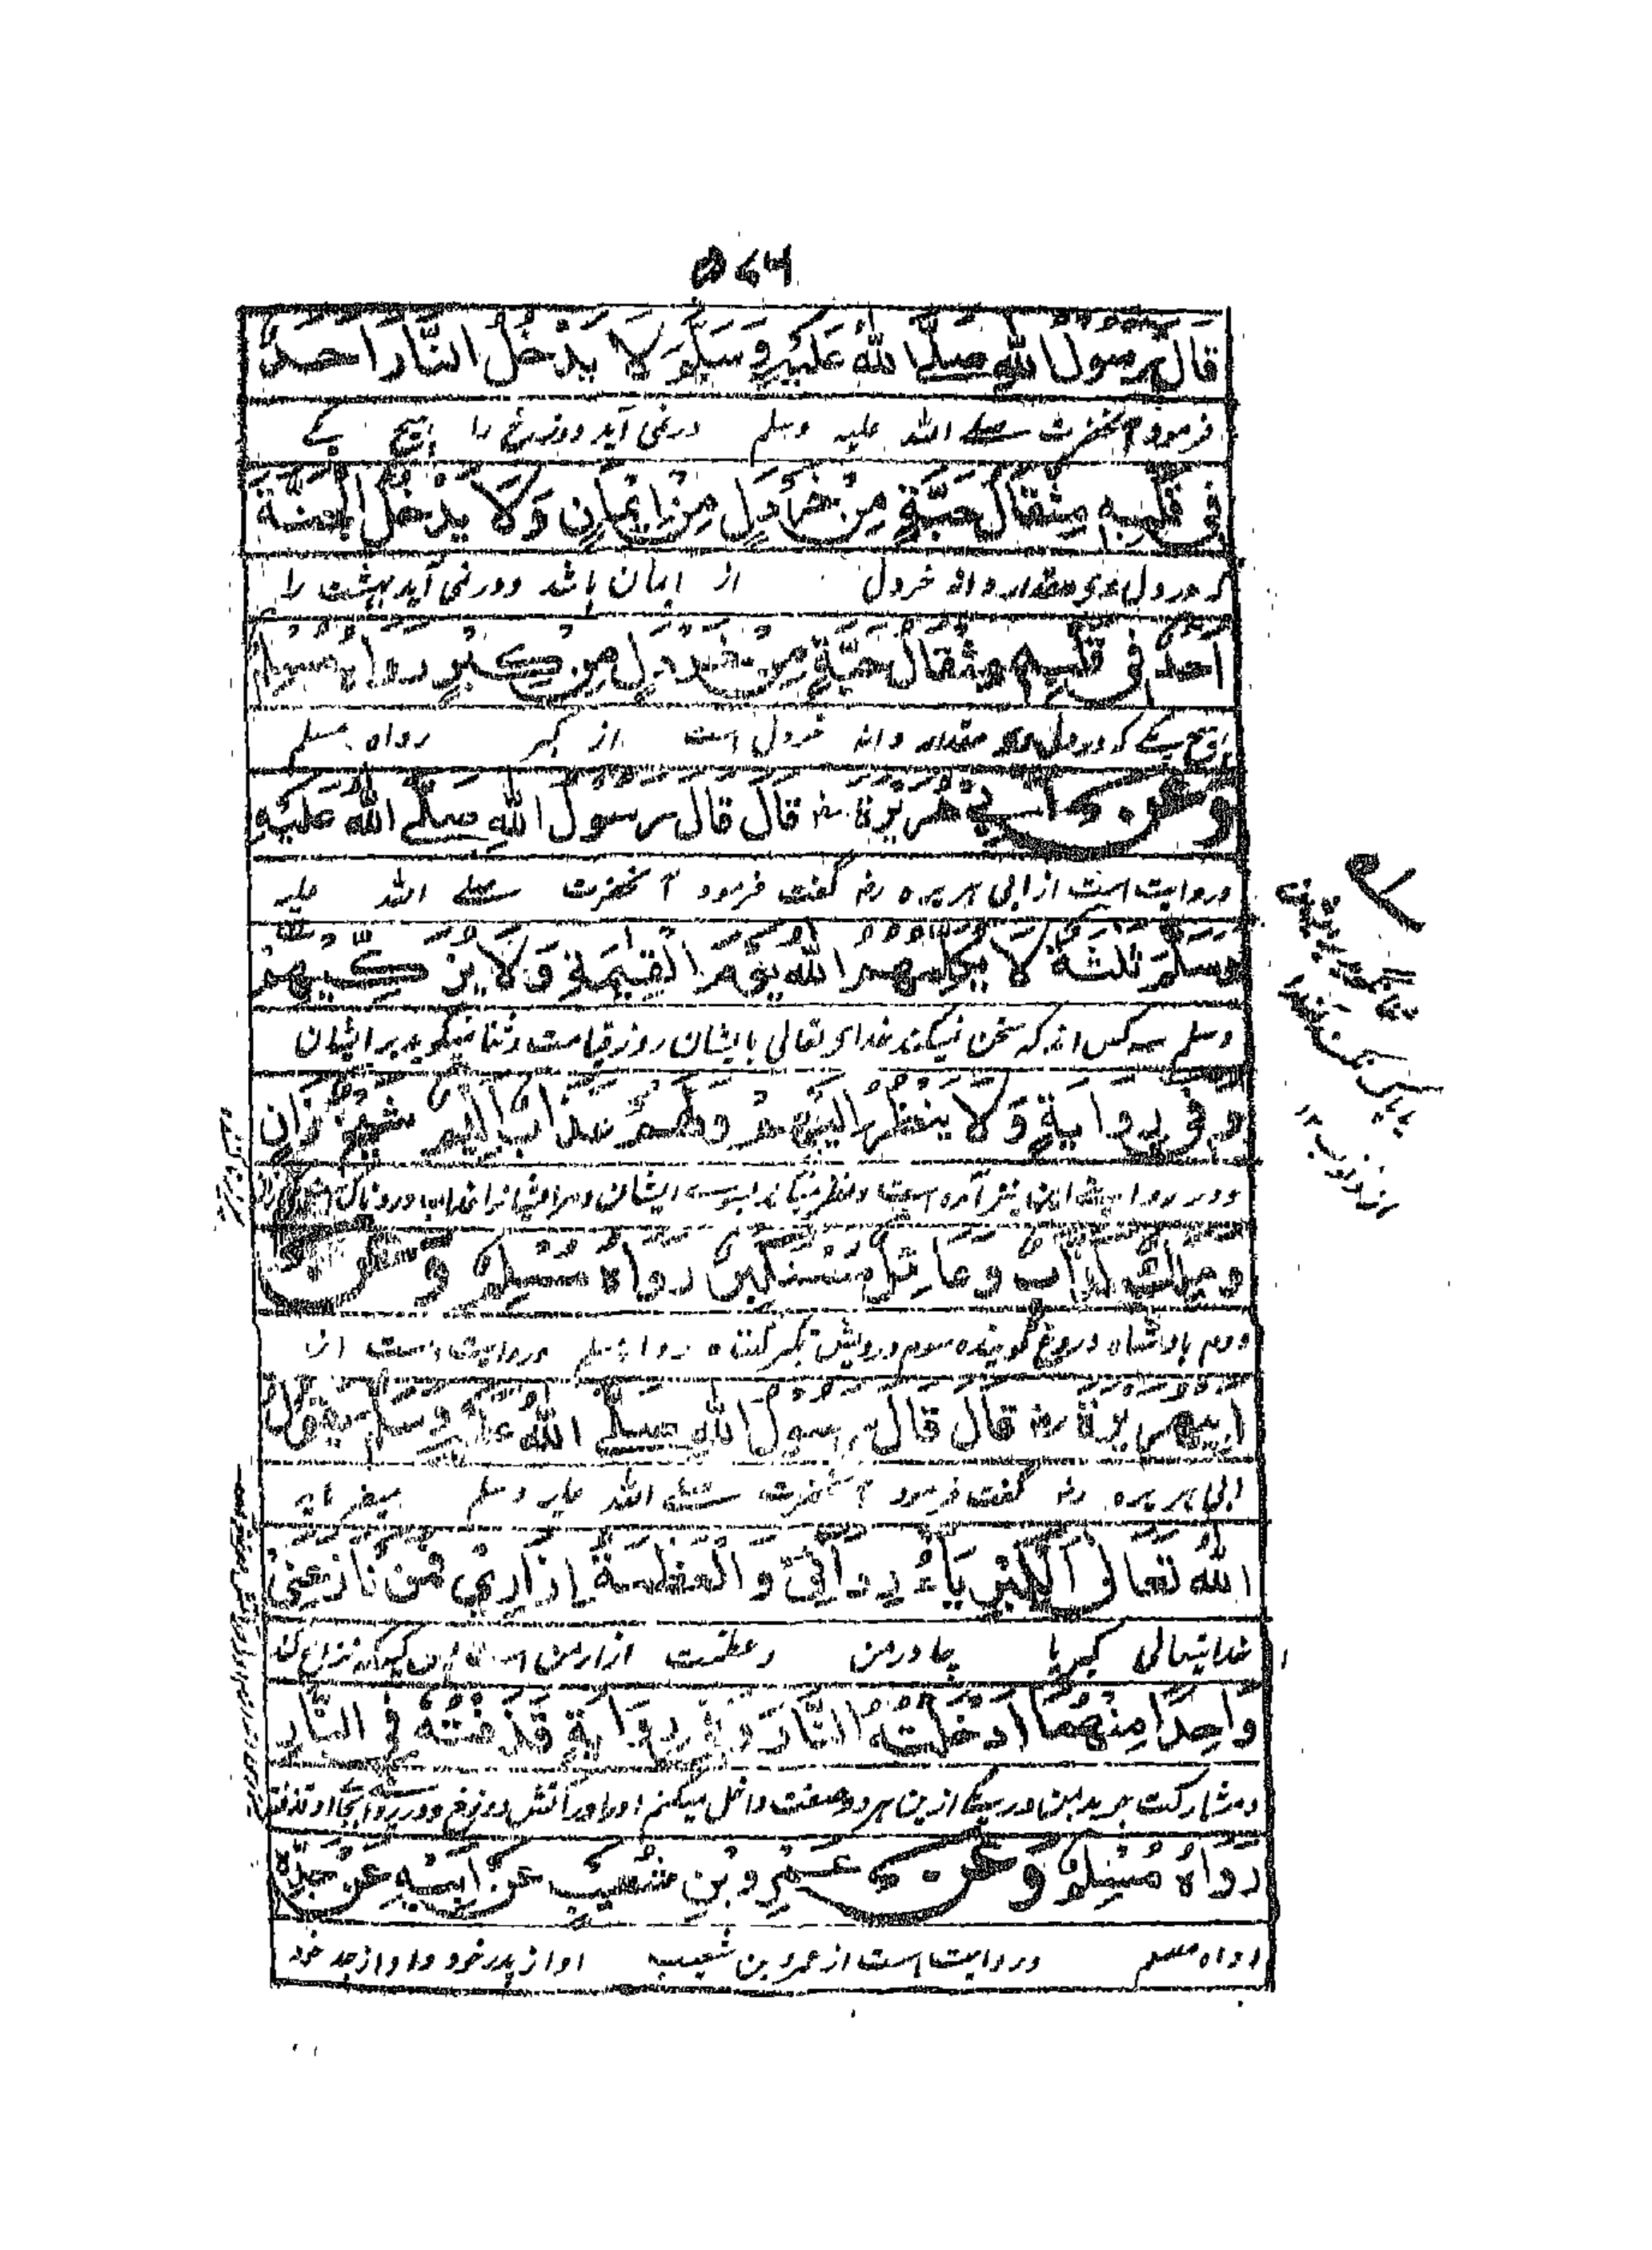 قَالَ رَسُولُ اللهِ صَلَّے اللهُ عَلَيْهِ وَسَلَّمَ لَا يَدْخُلُ النَّارَ اَحَدٌ
فرمود آنحضرت صلے اللہ علیہ وسلم در نمی آید دوزخ را ہیچ یکے
فِي قَلْبِهِ مِثْقَالُ حَبَّةٍ مِنْ خَرْدَلٍ مِنْ اِيْمَانٍ وَلَا يَدْخُلُ الْجَنَّةَ
کہ در دل وی مقدار دانہ خردل از ایمان باشد و در نمی آید بہشت را
اَحَدٌ فِي قَلْبِهِ مِثْقَالُ حَبَّةٍ مِنْ خَرْدَلٍ مِنْ كِبْرٍ رَوَاهُ مُسْلِمٌ
ہیچ یکے کہ در دل وی مقدار دانہ خردل است از کبر رواہ مسلم
وَعَنْ اَبِي هُرَيْرَةَ رض قَالَ قَالَ رَسُوْلُ اللهِ صَلَّے اللهُ عَلَيْهِ
وروایت است از ابی ہریرہ رض گفت فرمود آنحضرت صلے اللہ علیہ
وَسَلَّمَ ثَلٰثَةٌ لَا يُكَلِّمُهُمُ اللهُ يَوْمَ الْقِيٰمَةِ وَلَا يُزَكِّيْهِمْ
وسلم سہ کس اند کہ سخن نیکند خدای تعالی بایشان روز قیامت و ثنا نمیگوید بر ایشان
وَفِي رِوَايَةٍ وَلَا يَنْظُرُ اِلَيْهِمْ وَلَهُمْ عَذَابٌ اَلِيْمٌ شَيْخٌ زَانٍ
ودر روایت نیز آمدہ است ونظر نمیکند بسوے ایشان ومر ایشانرا عذاب دردناک
وَمَلِكٌ كَذَّابٌ وَعَائِلٌ مُسْتَكْبِرٌ رَوَاهُ مُسْلِمٌ وَعَنْ
دوم بادشاہ دروغ گویندہ سوم درویش تکبر کنندہ رواہ مسلم وروایت است از
اَبِيْ هُرَيْرَةَ رض قَالَ قَالَ رَسُوْلُ اللهِ صَلَّے اللهُ عَلَيْهِ وَسَلَّمَ يَقُوْلُ
ابی ہریرہ رض گفت فرمود آنحضرت صلے اللہ علیہ وسلم میفرماید
اللهُ تَعَالٰى اَلْكِبْرِيَاءُ رِدَائِيْ وَالْعَظَمَةُ اِزَارِيْ فَمَنْ نَازَعَنِيْ
خدایتعالی کبریا چادر من وعظمت ازار من است پس کسیکہ نزاع کند
وَاحِدًا مِنْهُمَا اَدْخَلْتُهُ النَّارَ وَفِي رِوَايَةٍ قَذَفْتُهُ فِي النَّارِ
ومشارکت جوید بمن در یکے ازین ہر دو صفت داخل میکنم او را در آتش دوزخ ودر
رَوَاهُ مُسْلِمٌ وَعَنْ عَمْرِو بْنِ شُعَيْبٍ عَنْ اَبِيْهِ عَنْ جَدِّهِ
رواہ مسلم وروایت است از عمرو بن شعیب او از پدر خود و او از جد خود